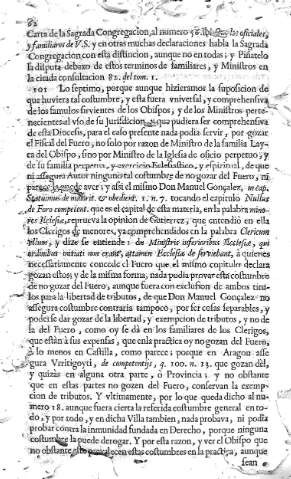 82
Carta de la Sagrada Congregacion, al numero 56. ibi: los oficiales,
y familiares de V.S. y en otras muchas declaraciones habla la Sagrada
Congregacion con esta distincion, aunque no en todas; y Pañatelo
la disputa debaxo de estos terminos de familiares, y Ministros en
la citada consultacion 82. del tom. 1.
101 Lo septimo, porque aunque hizieramos la suposicion de
que huviera tal costumbre, y esta fuera vniversal, y comprehensiva
de los famulos sirvientes de los Obispos, y de los Ministros perte-
necientes al vso de su Jurisdicion, que pudiera ser comprehensiva
de esta Diocesis, para el caso presente nada podia servir, por gozar
el Fiscal del Fuero, no solo por razon de Ministro de la familia Lay-
ca del Obispo, sino por Ministro de la Iglesia de oficio perpetuo, y
de su familia perpetua, y exercicio Eclesiastico, y espiritual, de que
ni assegura Autor ninguno tal costumbre de no gozar del Fuero, ni
parece la puede aver; y assi el mismo Don Manuel Gonçalez, in cap.
Statuimus de maiorit. & obedient. 1. n. 7. tocando el capitulo Nullus
de Foro competent. que es el capitulo de esta materia, en la palabra mino-
res Ecclesiæ, reprueva la opinion de Gutierrez, que entendiò en ella
los Clerigos de menores, ya comprehendidos en la palabra Clericum
vllum, y dize se entiende: de Ministris inferioribus Ecclesiæ, qui
ordinibus initiati non erant, attamen Ecclesiæ de serviebant, à quienes
necessariamente concede el Fuero que el mismo capitulo declara
gozan estos; y de la misma forma, nada podia provar esta costumbre
de no gozar del Fuero, aunque fuera con exclusion de ambos titu-
los para la libertad de tributos, de que Don Manuel Gonçalez no
assegura costumbre contraria tampoco, por ser cosas separables, y
poderse dar gozar de la libertad, y exempcion de tributos, y no de
la del Fuero, como oy se dà en los familiares de los Clerigos,
que estàn à sus expensas, que en la practica oy no gozan del Fuero,
à lo menos en Castilla, como parece; porque en Aragon asse-
gura Vrritigoyti, de competentijs, q. 100. n. 23. que gozan dèl,
y quizàs en alguna otra parte, ò Provincia; y no obstante
que en estas partes no gozen del Fuero, conservan la exemp-
cion de tributos. Y vltimamente, por lo que queda dicho al nu-
mero 18. aunque fuera cierta la referida costumbre general en to-
do, y por todo, y en dicha Villa tambien, nada probava, ni podia
probar contra la inmunidad fundada en Derecho, porque ninguna
costumbre la puede derogar. Y por esta razon, y ver el Obispo que
no obstante esto practicen estas costumbres en la practica, aunque
sean